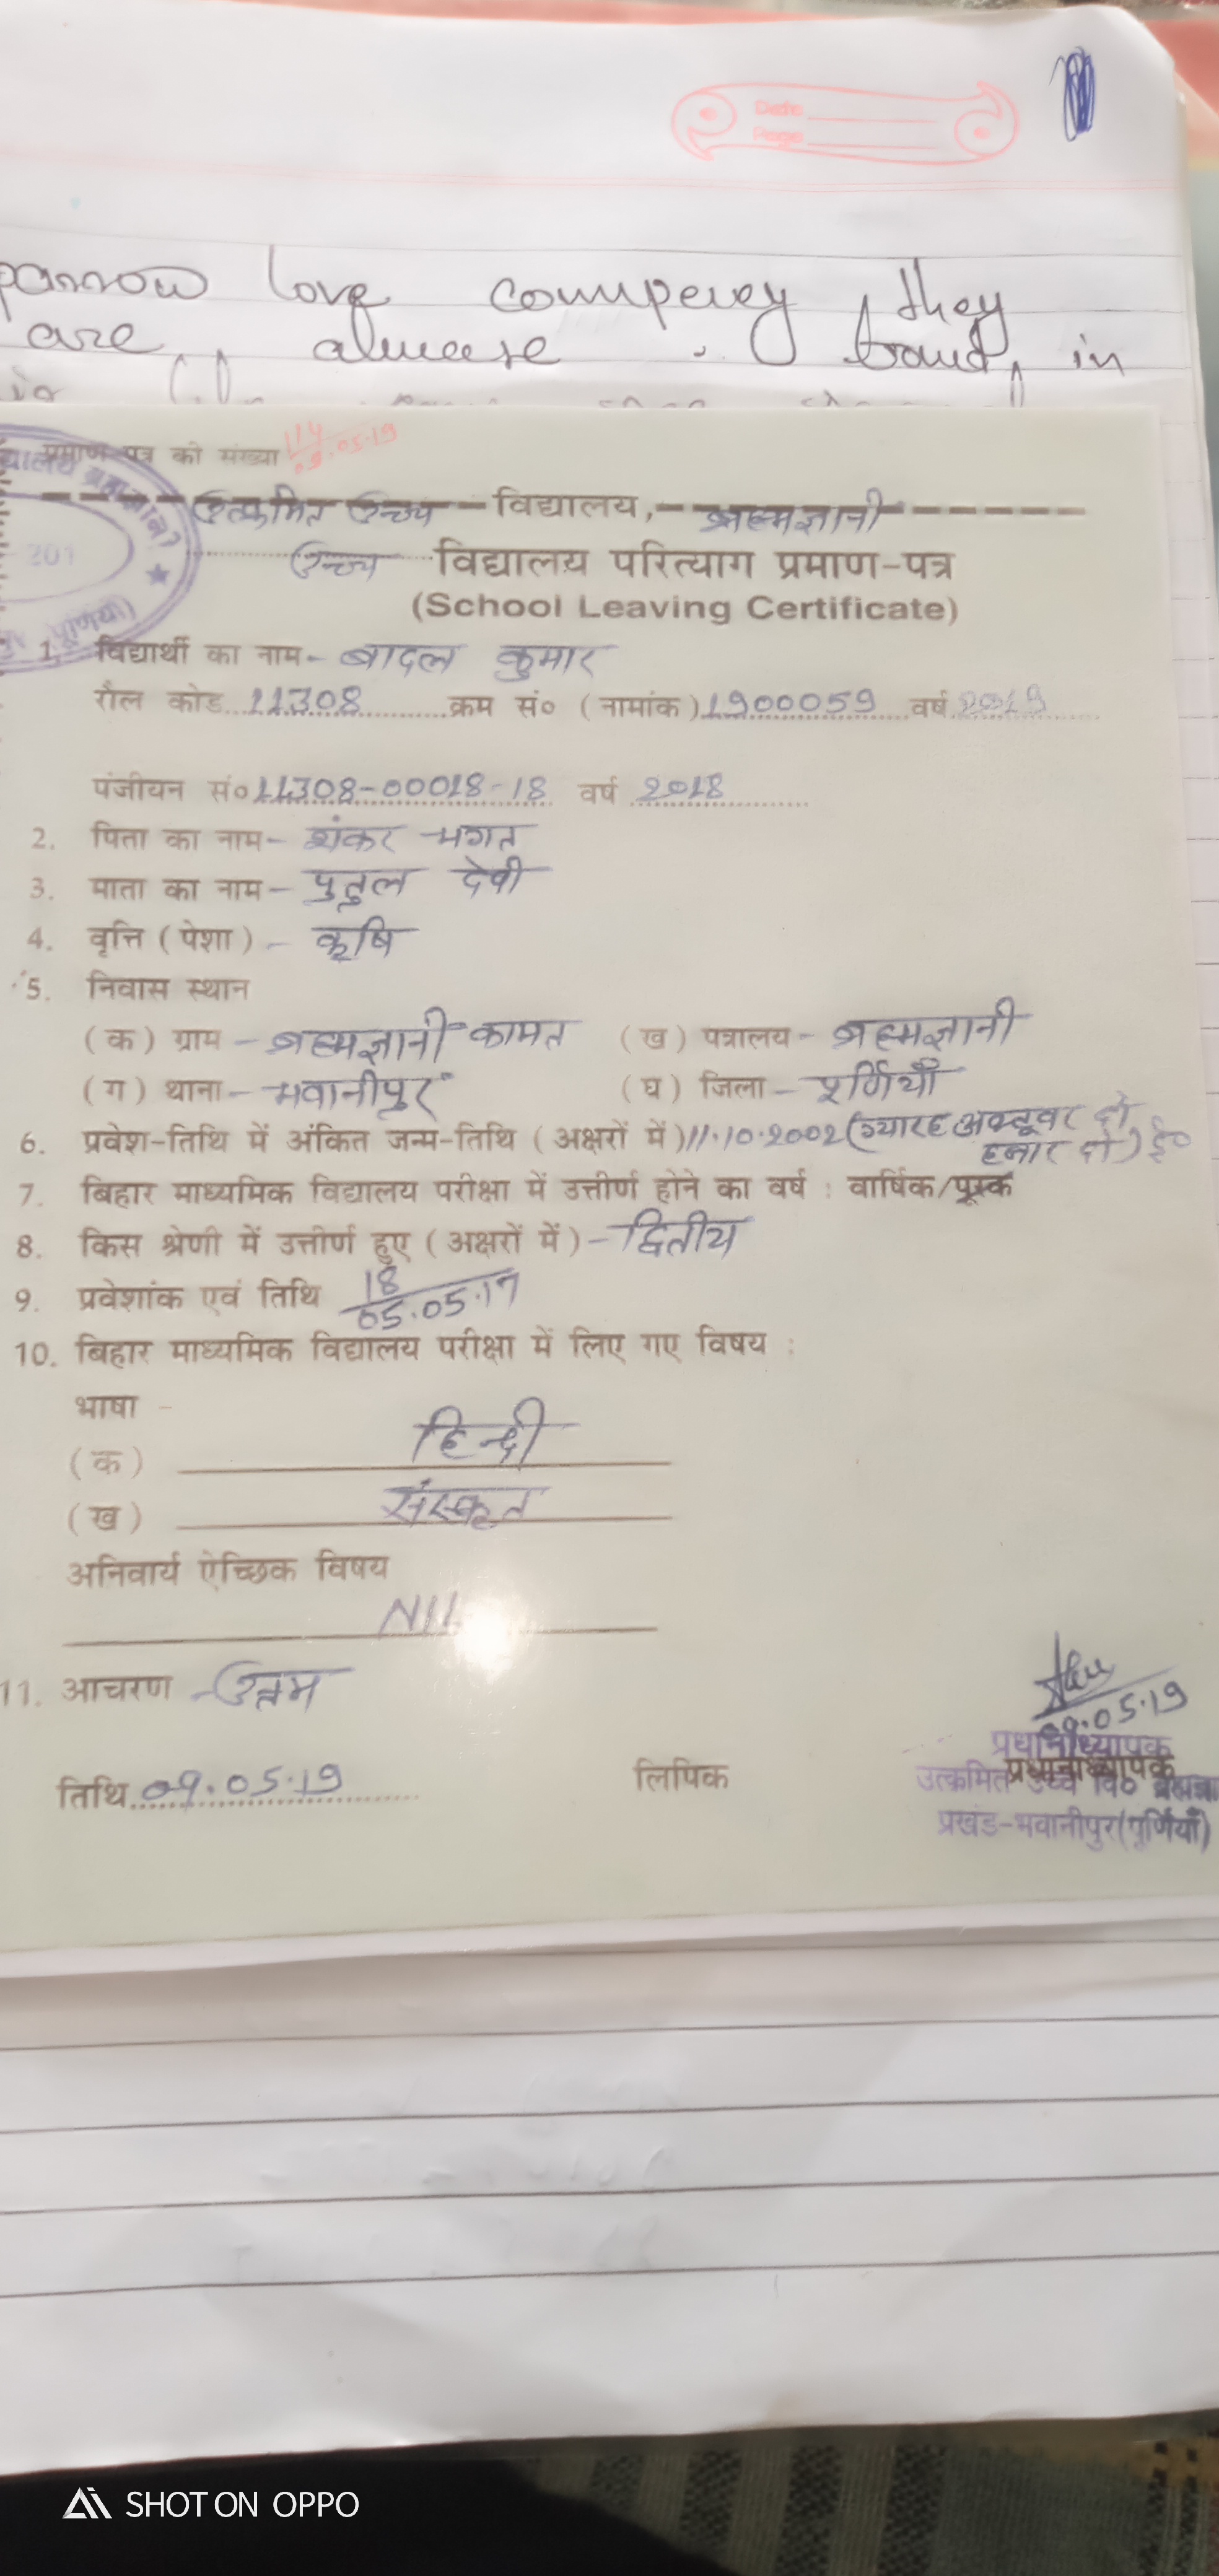 Date
Page
love compeney, they
are, aluease . found, in
प्रमाण पत्र की संख्या 114
09.05.19
उत्क्रमित उच्च विद्यालय, ब्रह्मज्ञानी
उच्च विद्यालय परित्याग प्रमाण-पत्र
(School Leaving Certificate)
1. विद्यार्थी का नाम- बादल कुमार
रौल कोड 11308 क्रम सं० (नामांक) 1900059 वर्ष 2019
पंजीयन सं० 11308-00018-18 वर्ष 2018
2. पिता का नाम- शंकर भगत
3. माता का नाम- पुतुल देवी
4. वृत्ति (पेशा) - कृषि
5. निवास स्थान
(क) ग्राम - ब्रह्मज्ञानी कामत (ख) पत्रालय - ब्रह्मज्ञानी
(ग) थाना - भवानीपुर (घ) जिला - पूर्णियाँ
6. प्रवेश-तिथि में अंकित जन्म-तिथि (अक्षरों में) 11.10.2002 (ग्यारह अक्टूबर दो
हजार दो) ई०
7. बिहार माध्यमिक विद्यालय परीक्षा में उत्तीर्ण होने का वर्ष : वार्षिक/पूरक
8. किस श्रेणी में उत्तीर्ण हुए (अक्षरों में) - द्वितीय
9. प्रवेशांक एवं तिथि 18
05.05.17
10. बिहार माध्यमिक विद्यालय परीक्षा में लिए गए विषय :
भाषा -
(क) हिन्दी
(ख) संस्कृत
अनिवार्य ऐच्छिक विषय
NIL
11. आचरण - उत्तम
09.05.19
तिथि 09.05.19 लिपिक प्रधानाध्यापक
प्रधानाध्यापक
उत्क्रमित उच्च वि०
प्रखंड-भवानीपुर (पूर्णियाँ)
SHOT ON OPPO